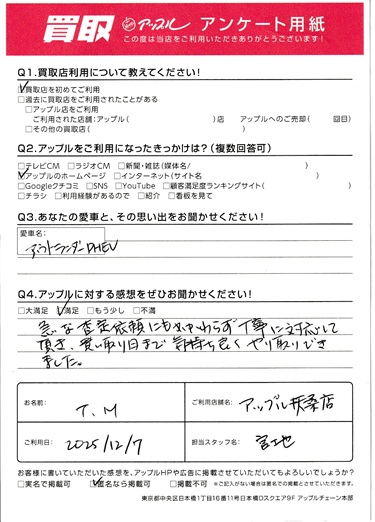 買取 アップル アンケート用紙
この度は当店をご利用いただきありがとうございます!
Q1.買取店利用について教えてください!
☑買取店を初めてご利用
□過去に買取店をご利用されたことがある
□アップル店をご利用
ご利用された店舗:アップル( )店 アップルへのご売却( 回目)
□その他の買取店( )
Q2.アップルをご利用になったきっかけは?(複数回答可)
□テレビCM □ラジオCM □新聞・雑誌(媒体名/ )
☑アップルのホームページ □インターネット(サイト名 )
□Googleクチコミ □SNS □YouTube □顧客満足度ランキングサイト( )
□チラシ □利用経験があるので □紹介 □看板を見て
Q3.あなたの愛車と、その思い出をお聞かせください!
愛車名:
アウトランダーPHEV
Q4.アップルに対する感想をぜひお聞かせください!
□大満足 ☑満足 □もう少し □不満
急な査定依頼にもかかわらず丁寧に対応して
頂き、買い取り日まで気持ち良くやり取りでき
ました。
お名前: T.M ご利用店舗名: アップル扶桑店
ご利用日: 2025/12/7 担当スタッフ名: 宮地
お客様に書いていただいた感想を、アップルHPや広告に掲載させていただいてもよろしいでしょうか?
□実名で掲載可 ☑匿名なら掲載可 □掲載不可 ※ご記入がない場合は匿名での掲載とさせていただきます。
東京都中央区日本橋1丁目16番11号日本橋Dスクエア9F アップルチェーン本部